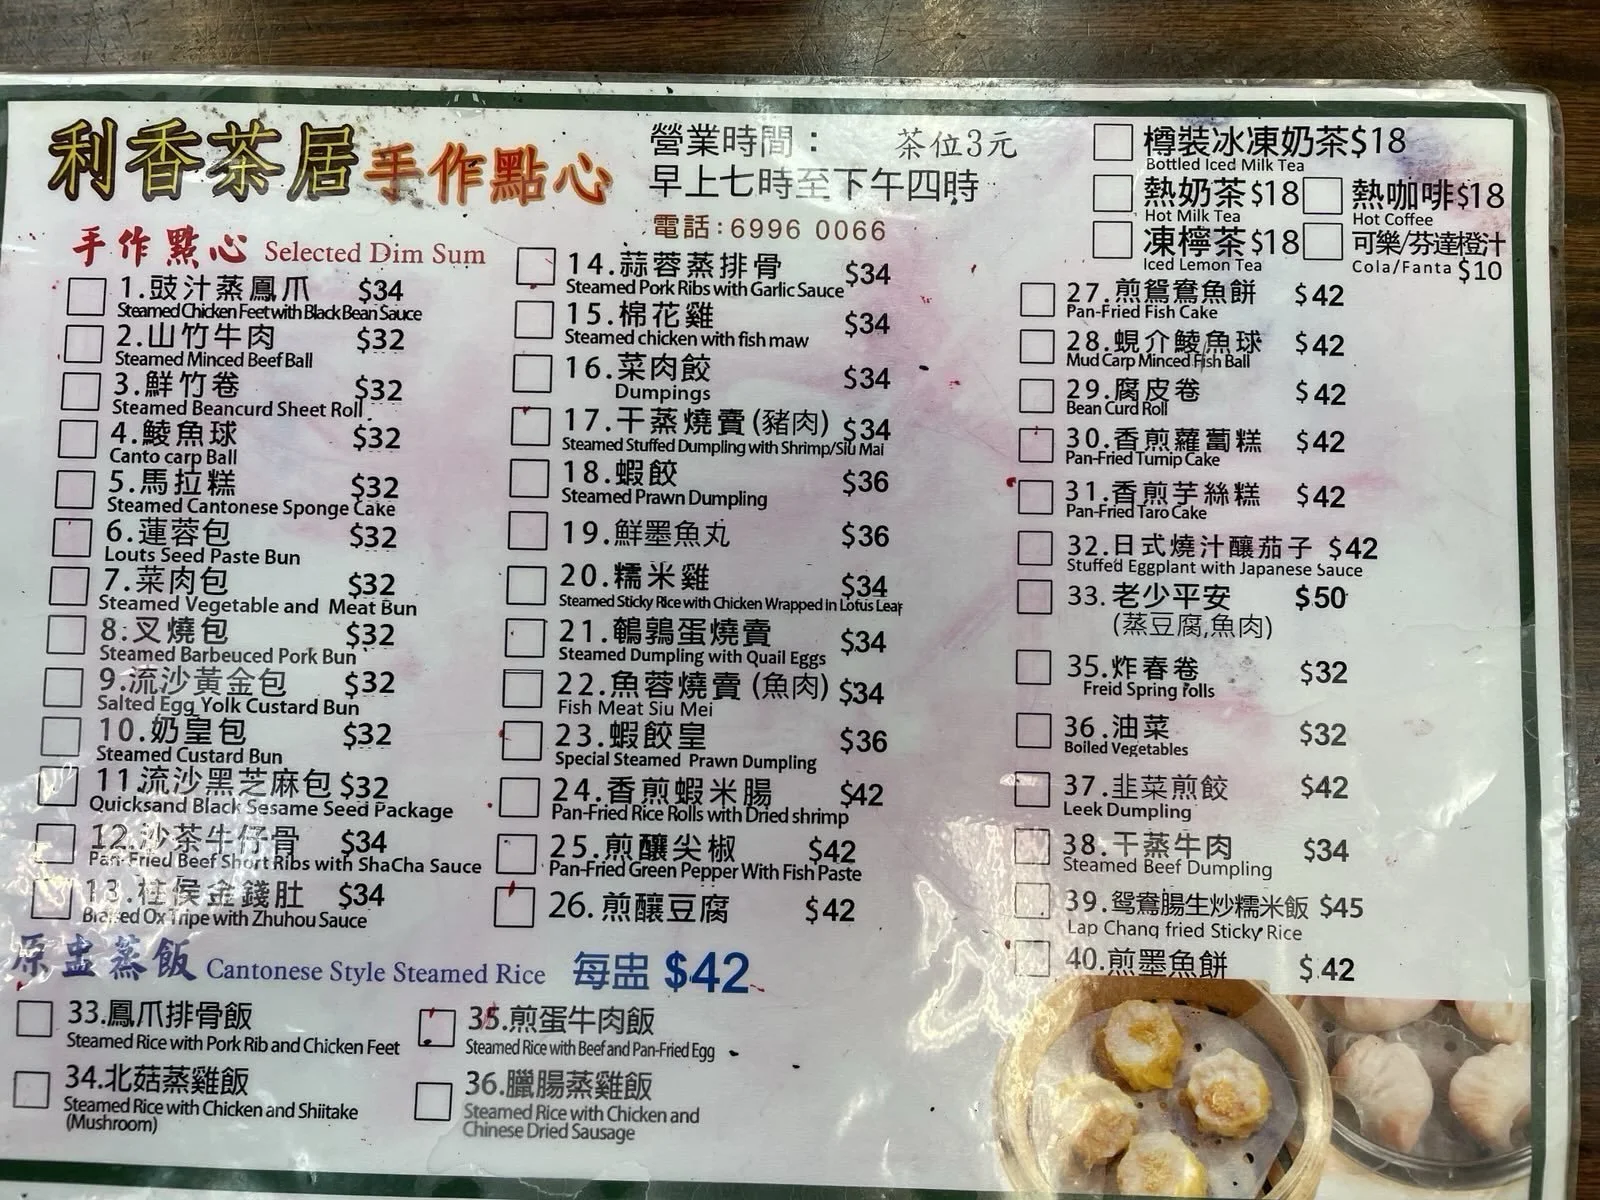 利香茶居手作點心
營業時間： 茶位3元
早上七時至下午四時
電話:6996 0066
手作點心 Selected Dim Sum
1.豉汁蒸鳳爪 $34
Steamed Chicken Feet with Black Bean Sauce
2.山竹牛肉 $32
Steamed Minced Beef Ball
3.鮮竹卷 $32
Steamed Beancurd Sheet Roll
4.鯪魚球 $32
Canto carp Ball
5.馬拉糕 $32
Steamed Cantonese Sponge Cake
6.蓮蓉包 $32
Louts Seed Paste Bun
7.菜肉包 $32
Steamed Vegetable and Meat Bun
8.叉燒包 $32
Steamed Barbeuced Pork Bun
9.流沙黃金包 $32
Salted Egg Yolk Custard Bun
10.奶皇包 $32
Steamed Custard Bun
11.流沙黑芝麻包 $32
Quicksand Black Sesame Seed Package
12.沙茶牛仔骨 $34
Pan-Fried Beef Short Ribs with ShaCha Sauce
13.柱侯金錢肚 $34
Braised Ox Tripe with Zhuhou Sauce
14.蒜蓉蒸排骨 $34
Steamed Pork Ribs with Garlic Sauce
15.棉花雞 $34
Steamed chicken with fish maw
16.菜肉餃 $34
Dumpings
17.干蒸燒賣(豬肉) $34
Steamed Stuffed Dumpling with Shrimp/Siu Mai
18.蝦餃 $36
Steamed Prawn Dumpling
19.鮮墨魚丸 $36
20.糯米雞 $34
Steamed Sticky Rice with Chicken Wrapped in Lotus Leaf
21.鵪鶉蛋燒賣 $34
Steamed Dumpling with Quail Eggs
22.魚蓉燒賣(魚肉) $34
Fish Meat Siu Mei
23.蝦餃皇 $36
Special Steamed Prawn Dumpling
24.香煎蝦米腸 $42
Pan-Fried Rice Rolls with Dried shrimp
25.煎釀尖椒 $42
Pan-Fried Green Pepper With Fish Paste
26.煎釀豆腐 $42
樽裝冰凍奶茶$18
Bottled Iced Milk Tea
熱奶茶$18 熱咖啡$18
Hot Milk Tea Hot Coffee
凍檸茶$18 可樂/芬達橙汁
Iced Lemon Tea Cola/Fanta $10
27.煎鴛鴦魚餅 $42
Pan-Fried Fish Cake
28.蜆介鯪魚球 $42
Mud Carp Minced Fish Ball
29.腐皮卷 $42
Bean Curd Roll
30.香煎蘿蔔糕 $42
Pan-Fried Turnip Cake
31.香煎芋絲糕 $42
Pan-Fried Taro Cake
32.日式燒汁釀茄子 $42
Stuffed Eggplant with Japanese Sauce
33.老少平安 $50
(蒸豆腐,魚肉)
35.炸春卷 $32
Freid Spring rolls
36.油菜 $32
Boiled Vegetables
37.韭菜煎餃 $42
Leek Dumpling
38.干蒸牛肉 $34
Steamed Beef Dumpling
39.鴛鴦腸生炒糯米飯 $45
Lap Chang fried Sticky Rice
40.煎墨魚餅 $42
原盅蒸飯 Cantonese Style Steamed Rice 每盅 $42
33.鳳爪排骨飯
Steamed Rice with Pork Rib and Chicken Feet
34.北菇蒸雞飯
Steamed Rice with Chicken and Shiitake
(Mushroom)
35.煎蛋牛肉飯
Steamed Rice with Beef and Pan-Fried Egg
36.臘腸蒸雞飯
Steamed Rice with Chicken and
Chinese Dried Sausage